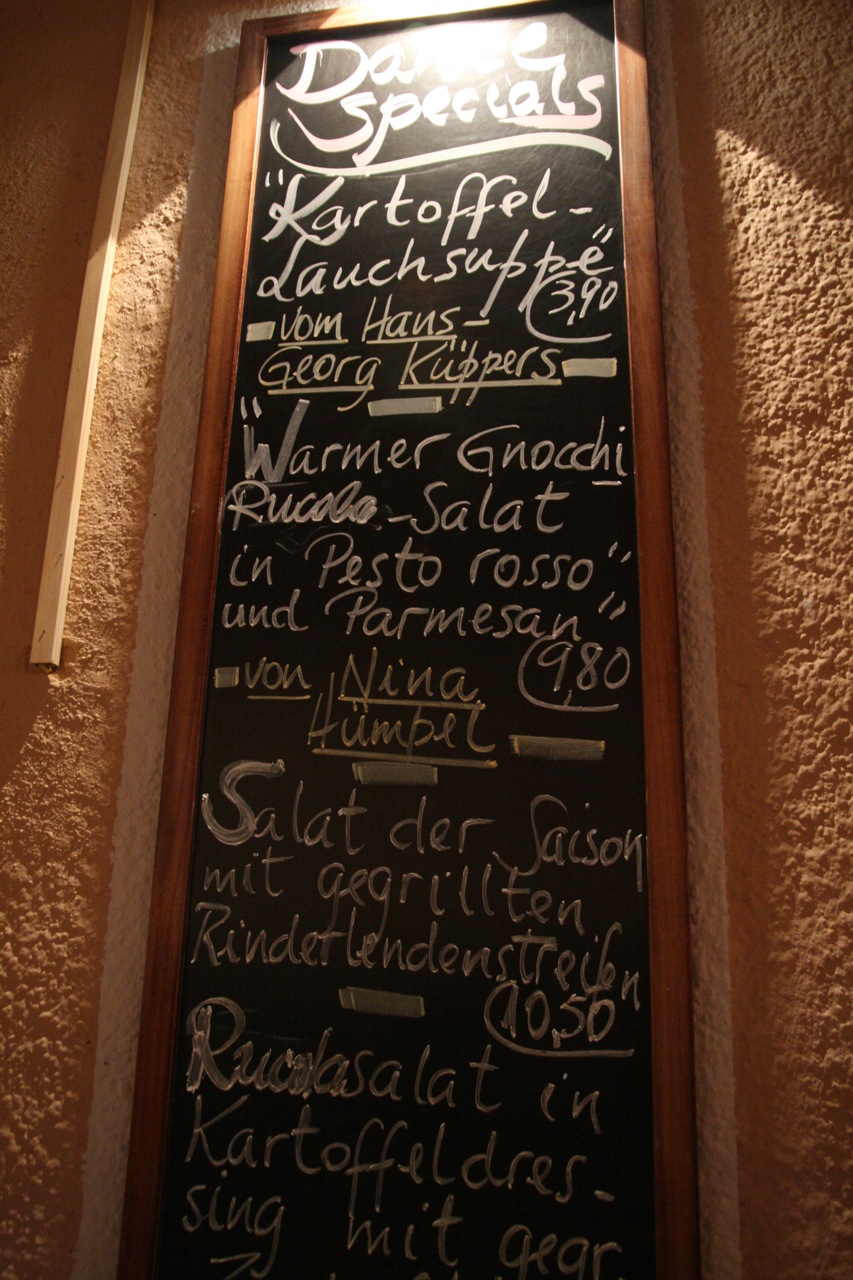 Dance
specials
"Kartoffel-
Lauchsuppe"
3,90
vom Hans-
Georg Küppers
"Warmer Gnocchi
Rucola-Salat
in Pesto rosso"
und Parmesan"
9,80
von Nina
Hümpel
Salat der Saison
mit gegrillten
Rinderlendenstreifen
10,50
Rucolasalat in
Kartoffeldres-
sing mit gegr